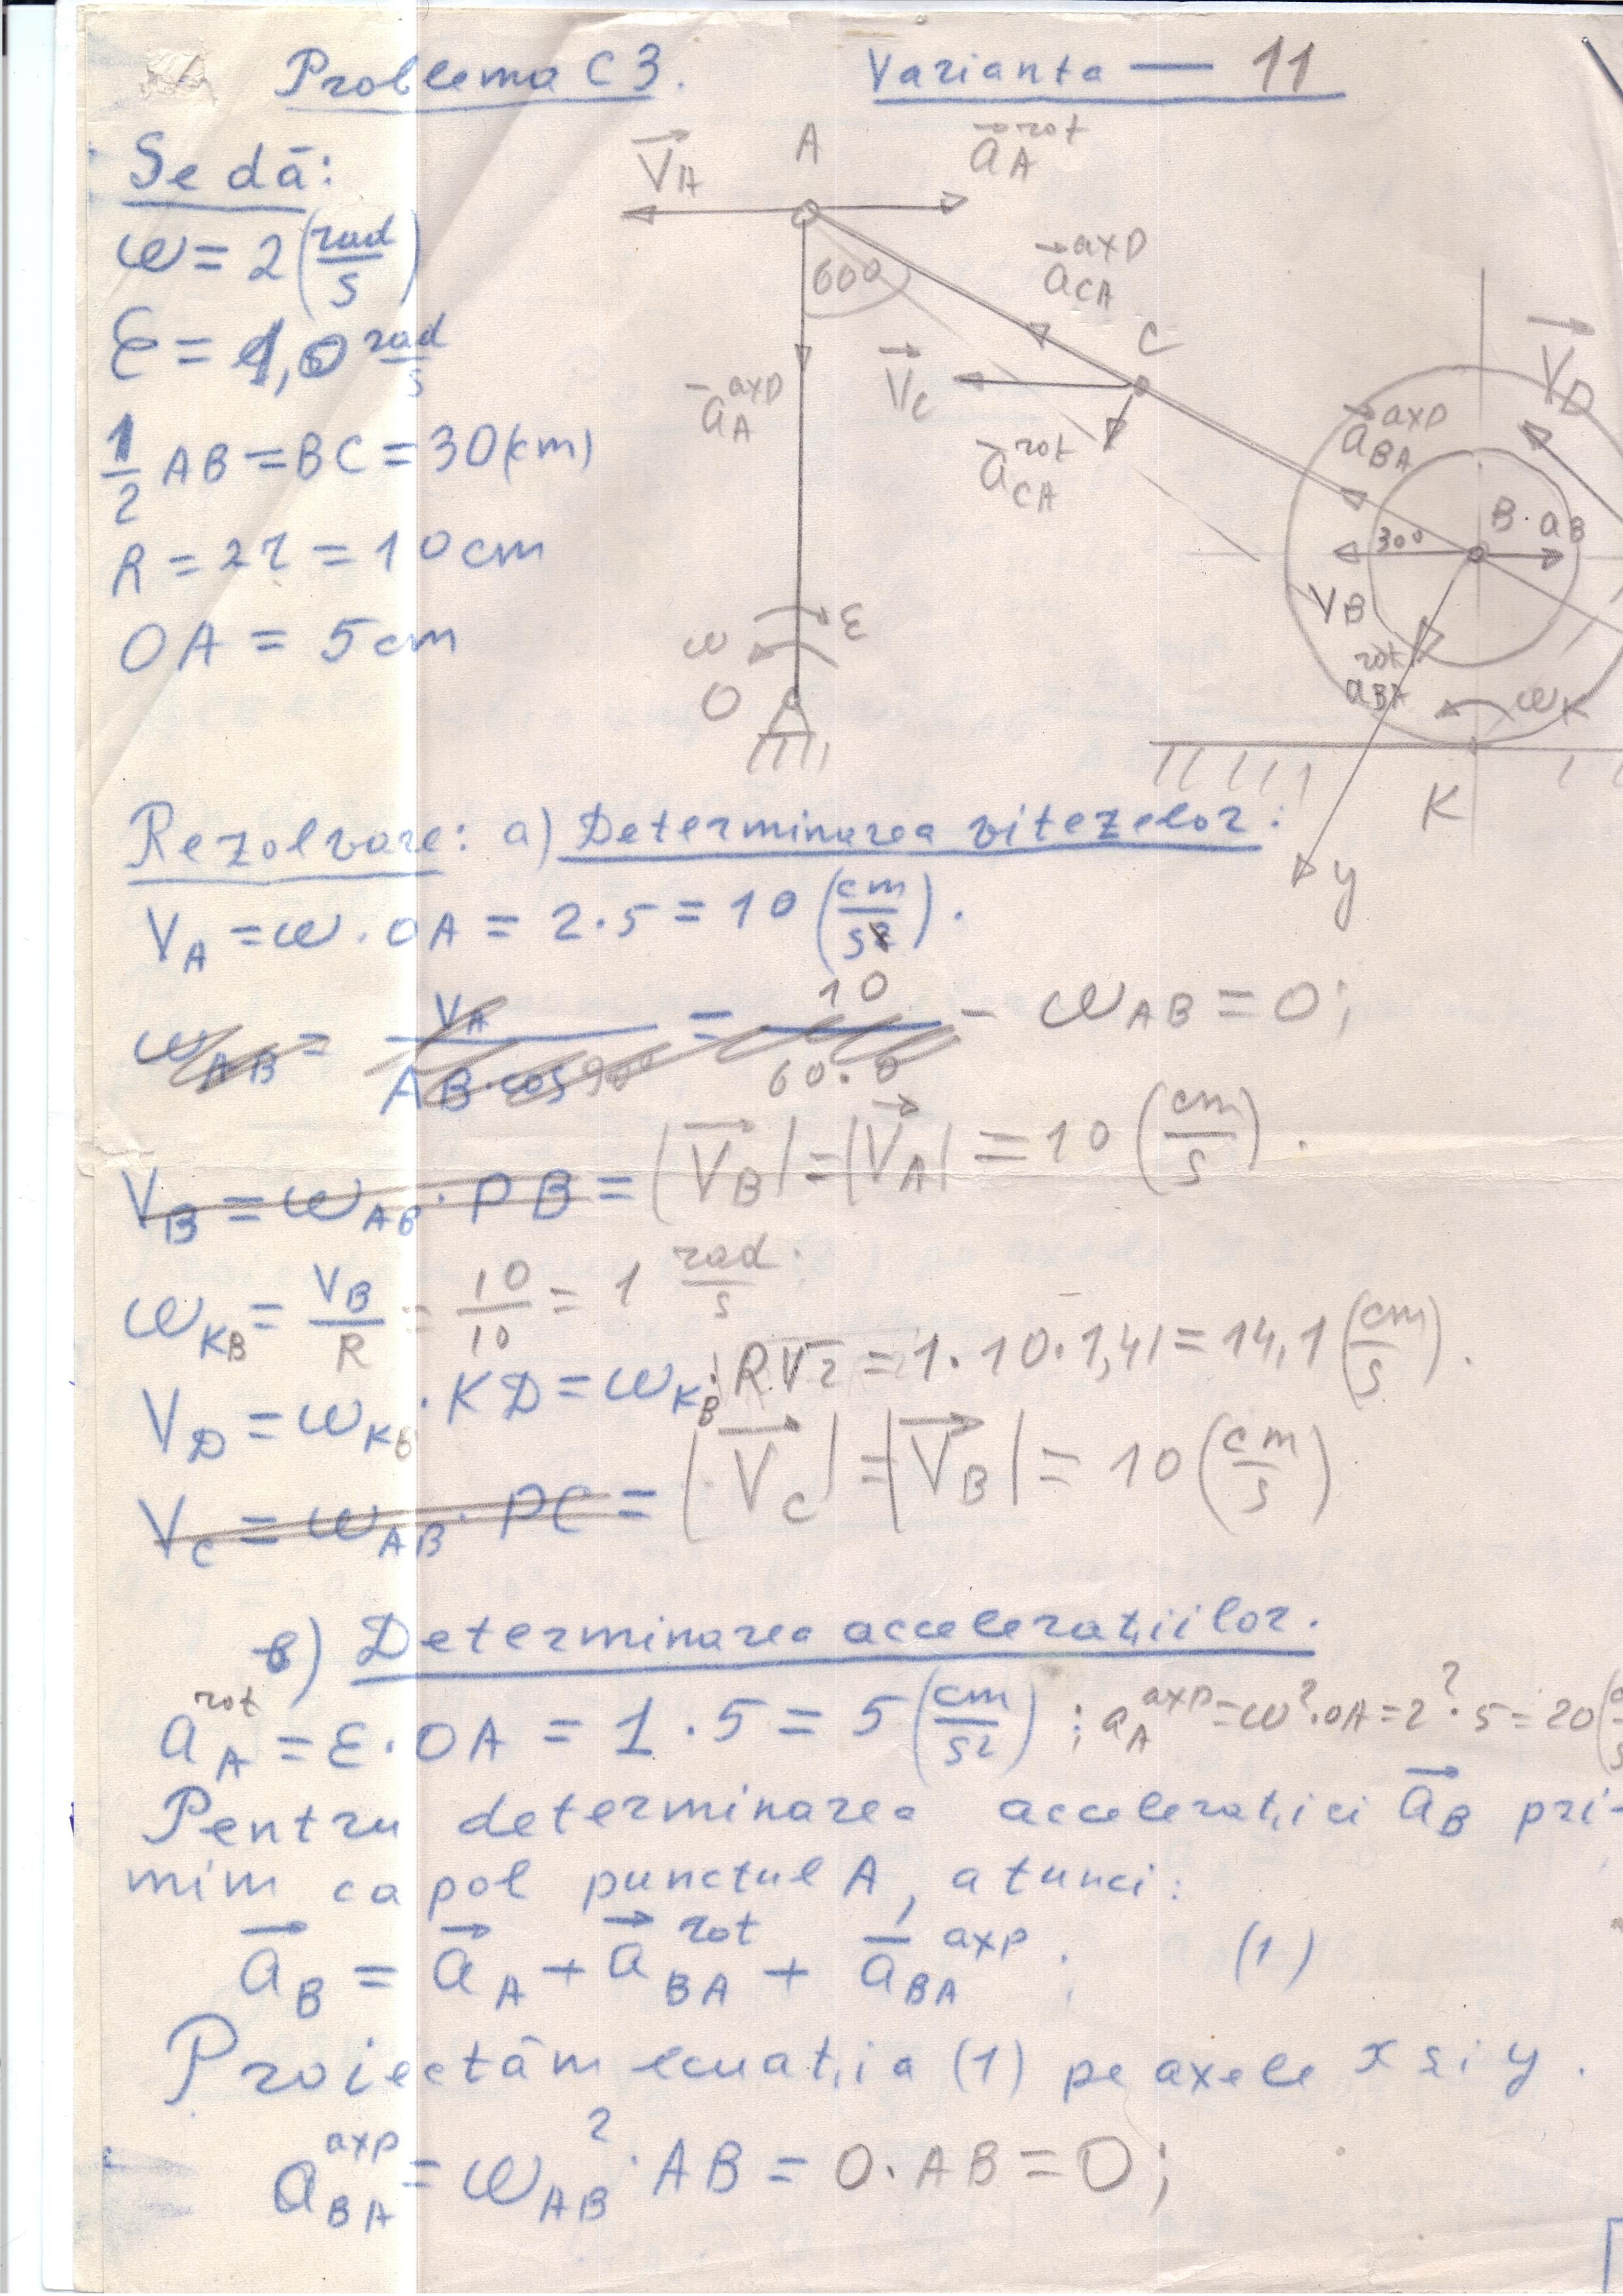 Problema C3. Varianta — 11
Se dă:
ω = 2 (rad/s)
ε = 1,0 rad/s
1/2 AB = BC = 30 (cm)
R = 2r = 10 cm
OA = 5 cm
V⃗A A a⃗A rot
60° a⃗CA axp
C
a⃗A axp V⃗C a⃗CA rot
V⃗D
a⃗BA axp
B aB
30°
VB
aBA rot
ω ε
O
ωK
K
y
Rezolvare: a) Determinarea vitezelor:
VA = ω · OA = 2 · 5 = 10 (cm/s).
ωAB = VA / AB·cos 90° = 10 / 60·0 – ωAB = 0;
VB = ωAB · PB = |V⃗B| = |V⃗A| = 10 (cm/s).
ωKB = VB/R = 10/10 = 1 rad/s.
VD = ωKB · KD = ωKB · R√2 = 1·10·1,41 = 14,1 (cm/s).
VC = ωAB · PC = |V⃗C| = |V⃗B| = 10 (cm/s)
b) Determinarea accelerațiilor.
aA rot = ε · OA = 1 · 5 = 5 (cm/s²); aA axp = ω² · OA = 2² · 5 = 20
Pentru determinarea accelerației a⃗B pri-
mim ca pol punctul A, atunci:
a⃗B = a⃗A + a⃗BA rot + a⃗BA axp; (1)
Proiectăm ecuația (1) pe axele x și y.
aBA axp = ωAB² · AB = 0 · AB = 0;